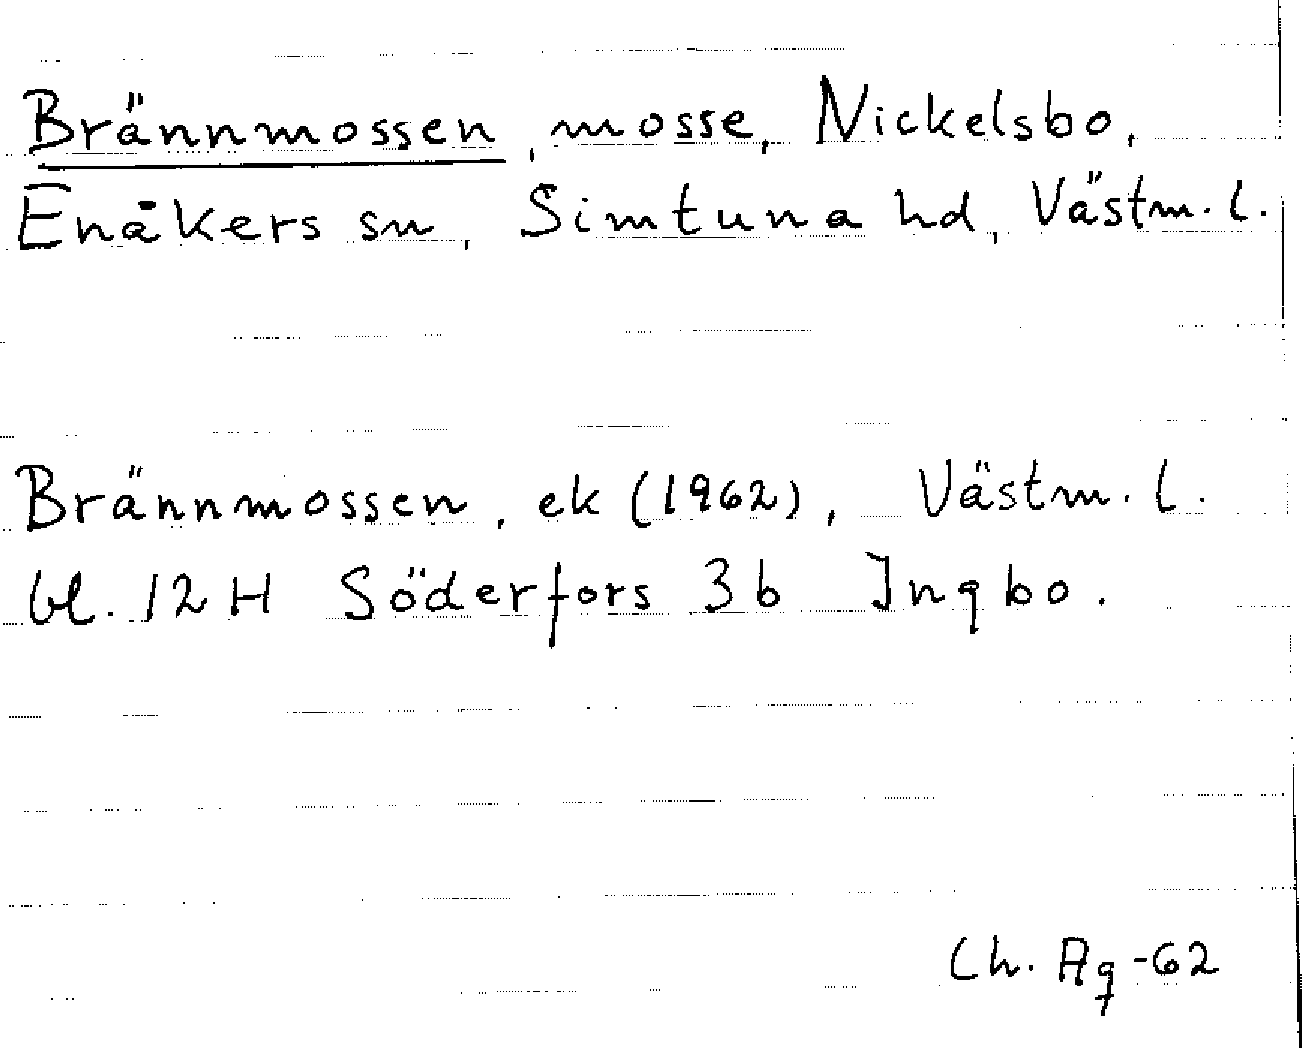 Brännmossen, mosse, Nickelsbo,
Enåkers sn, Simtuna hd, Västm. l.
Brännmossen, ek (1962), Västm. l.
bl. 12 H Söderfors 3 b Ingbo.
Ch. Ag -62